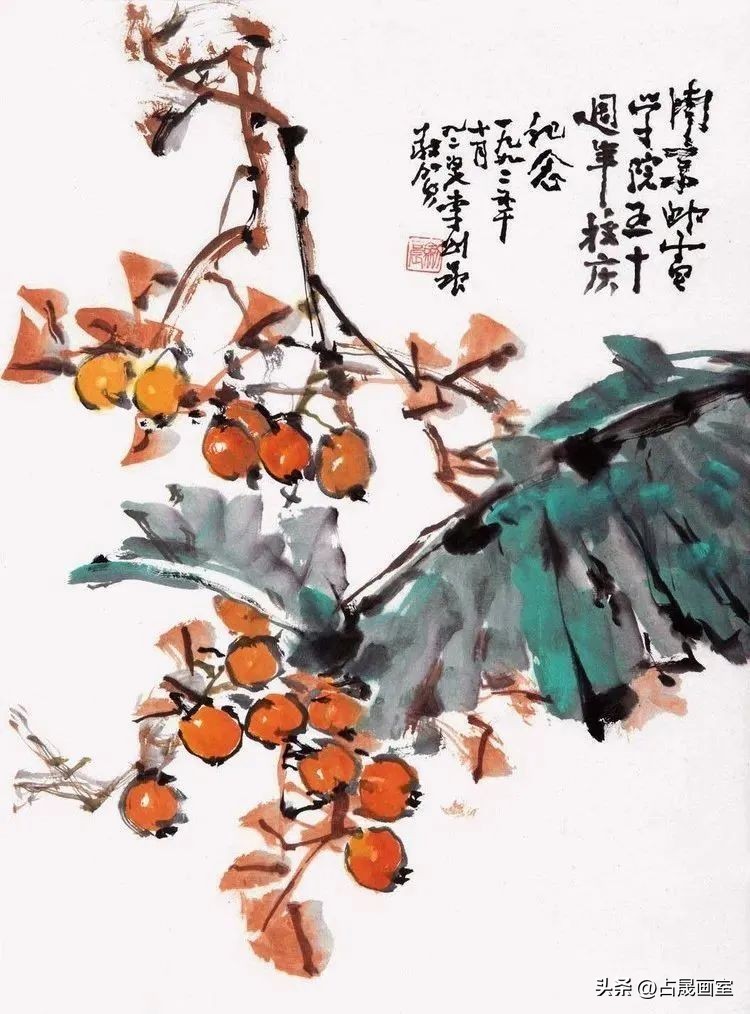 南京邮电
学院五十
週年校庆
纪念
一九九二年
十月
九二叟李剑晨
敬贺
头条 @占晟画室